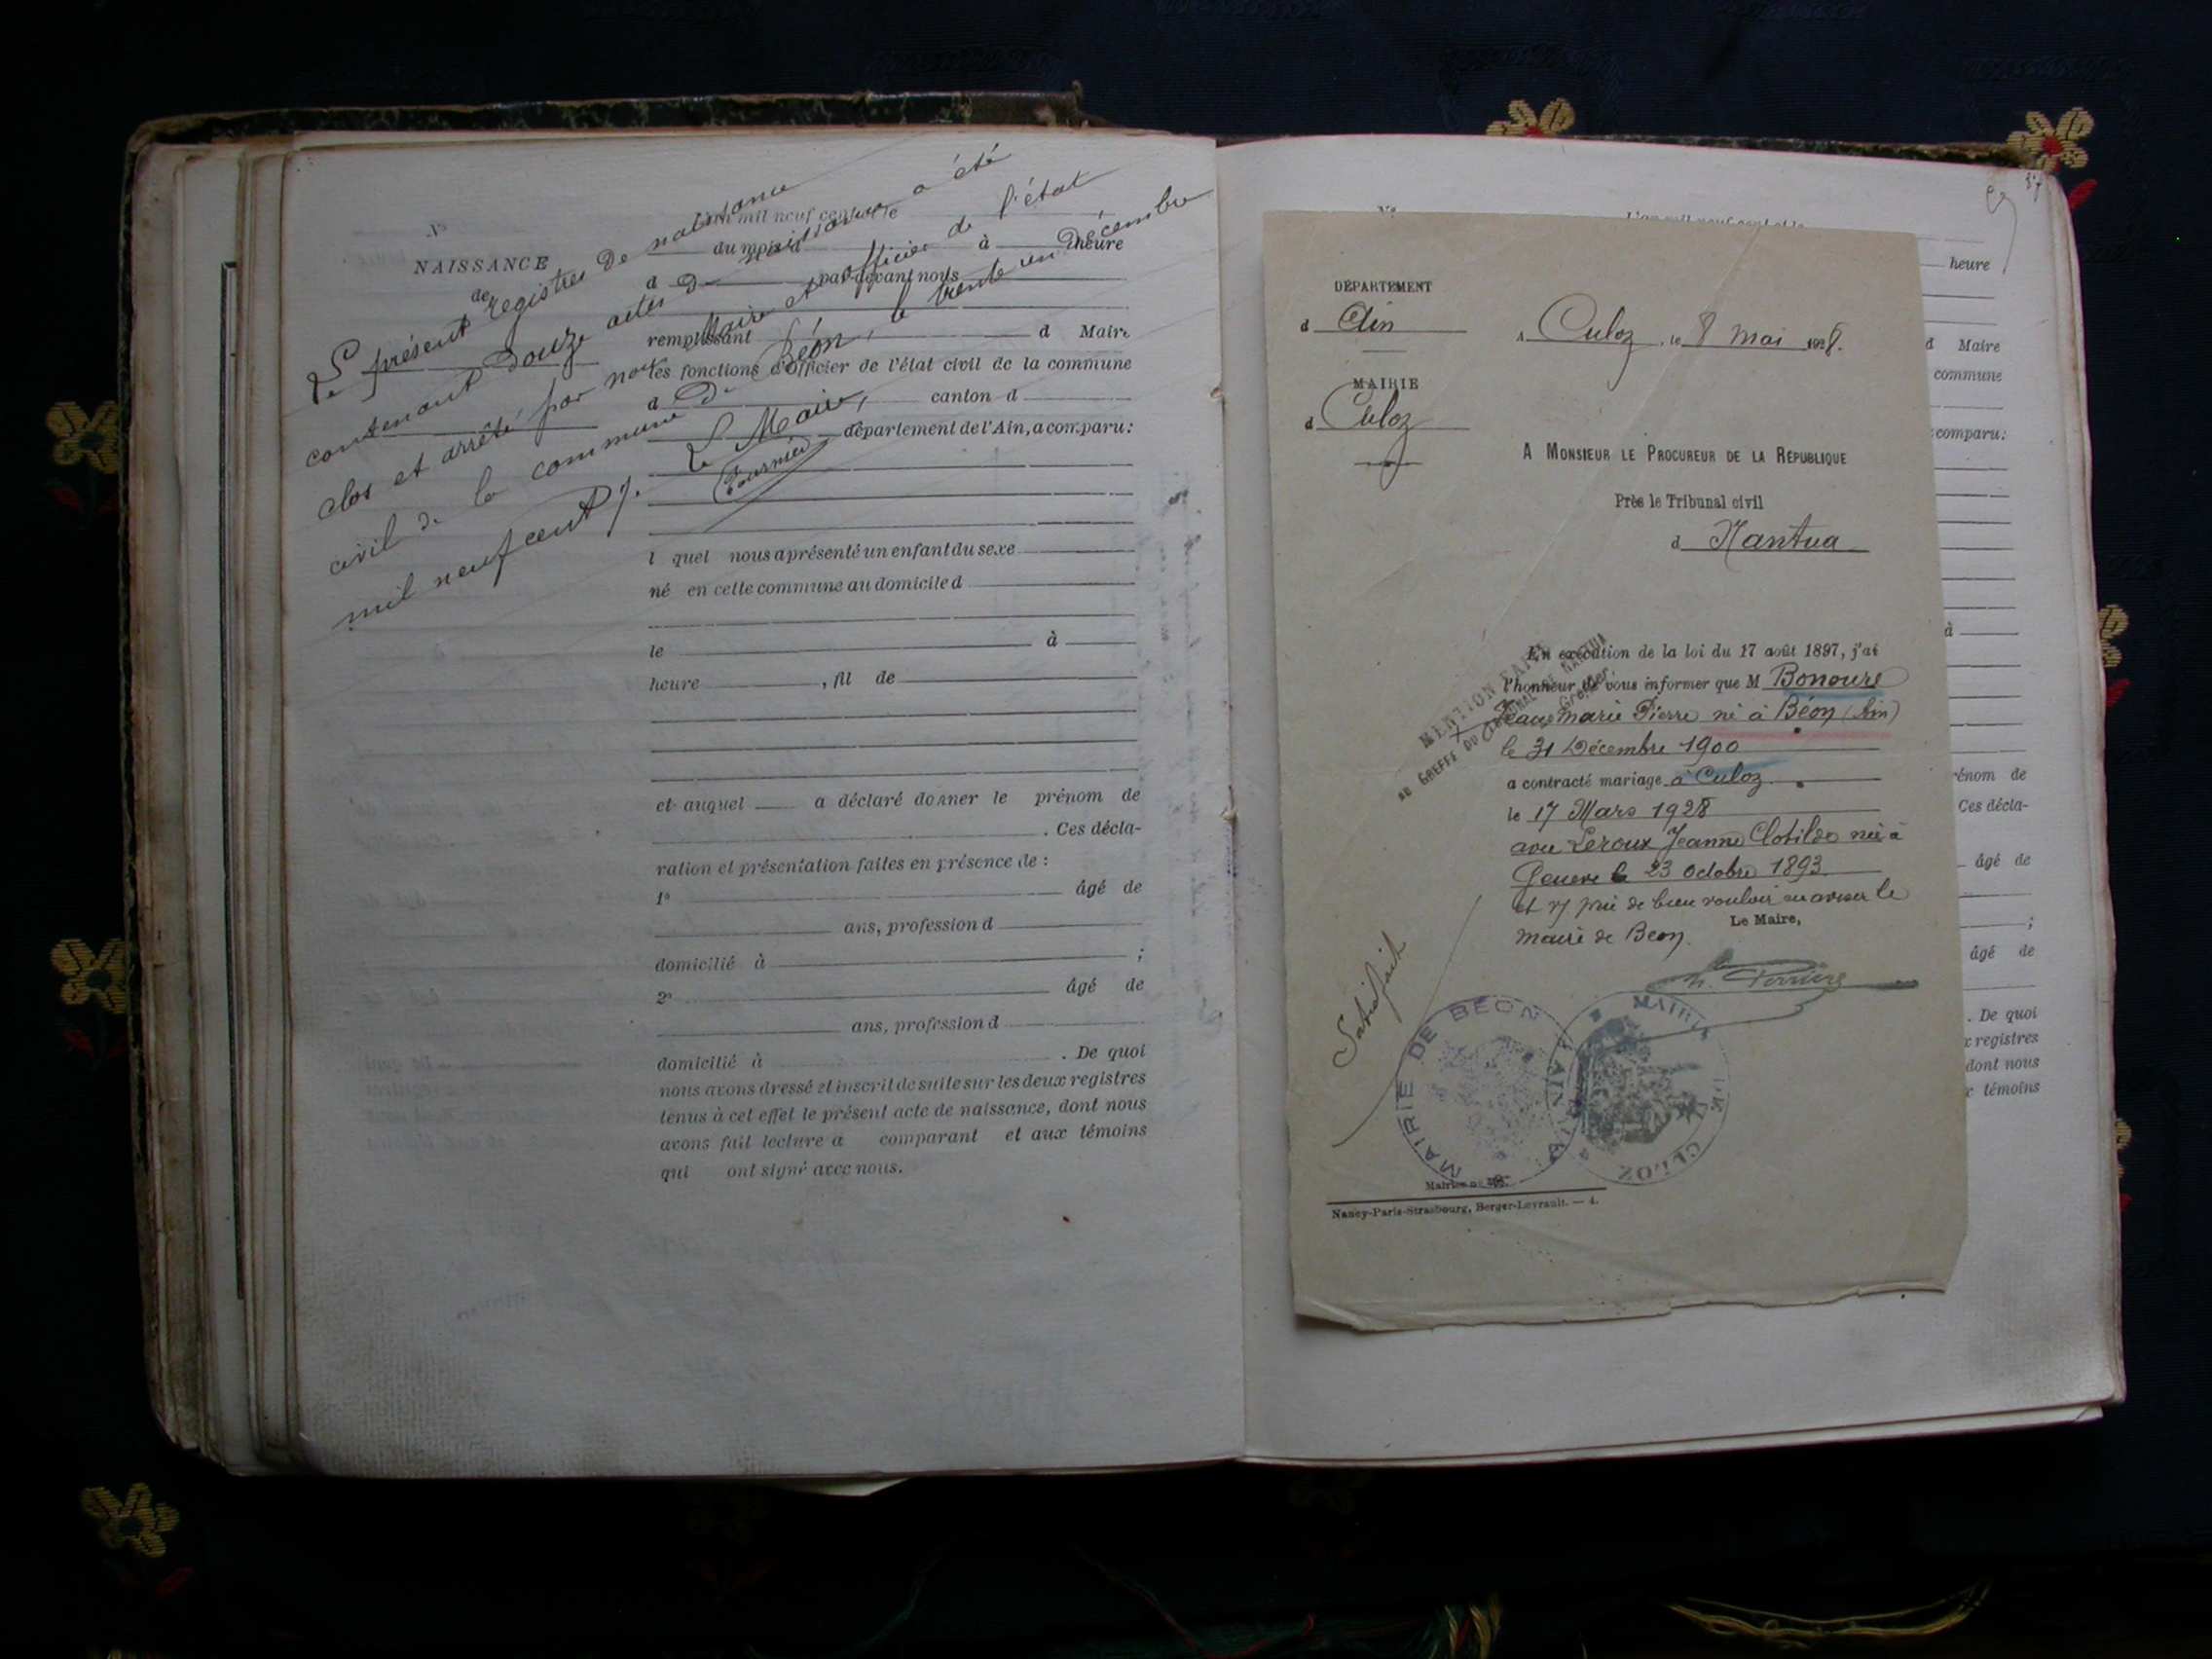 Le présent registre de naissance
contenant douze actes de naissance a été
clos et arrêté par nous Maire et officier de l'état
civil de la commune de Béon, le trente un Décembre
mil neuf cent.
Le Maire,
Fournier
N°
NAISSANCE
de
L'an mil neuf cent et le
du mois d à heure
d par-devant nous
remplissant d Maire
les fonctions d'officier de l'état civil de la commune
d canton d
département de l'Ain, a comparu:
l quel nous a présenté un enfant du sexe
né en cette commune au domicile d
le à
heure , fil de
et auquel a déclaré donner le prénom de
. Ces décla-
ration et présentation faites en présence de :
1° âgé de
ans, profession d
domicilié à ;
2° âgé de
ans, profession d
domicilié à . De quoi
nous avons dressé et inscrit de suite sur les deux registres
tenus à cet effet le présent acte de naissance, dont nous
avons fait lecture a comparant et aux témoins
qui ont signé avec nous.
N° L'an mil neuf cent et le
heure
d Maire
commune
comparu:
à
rénom de
Ces décla-
âgé de
;
âgé de
. De quoi
x registres
dont nous
x témoins
DÉPARTEMENT
d Ain
A Culoz, le 8 mai 1928.
MAIRIE
d Culoz
A MONSIEUR LE PROCUREUR DE LA RÉPUBLIQUE
Près le Tribunal civil
d Nantua
MENTION FAITE
AU GREFFE DU TRIBUNAL DE NANTUA
Greffier
En exécution de la loi du 17 août 1897, j'ai
l'honneur de vous informer que M Bonoure
Jean Marie Pierre né à Béon (Ain)
le 31 Décembre 1900
a contracté mariage à Culoz
le 17 Mars 1928
avec Leroux Jeanne Clotilde née à
Geneve le 23 Octobre 1893.
et prie de bien vouloir en aviser le
Maire de Beon.
Le Maire,
Satisfait
MAIRIE DE BEON
AIN
MAIRIE DE CULOZ
AIN
Mairies n°
Nancy-Paris-Strasbourg, Berger-Levrault. — 4.